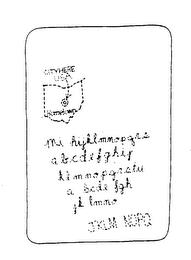 CITY HERE
USA
Hometown
Mr hijklmnopqrs
abcdefghij
klmnopqrstu
a bcde fgh
jk lmno
JKLM NOPQ